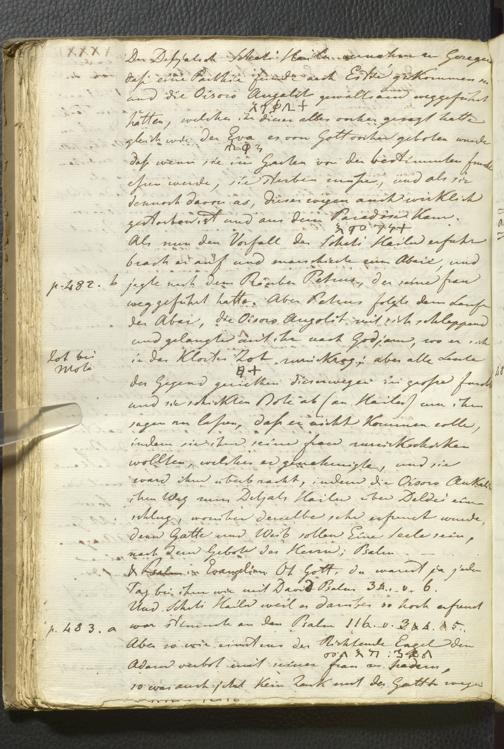 Der Dedjatsch Scheti Hailu vernahm in Gorezen
daß eine Parthie Feinde nach Este gekommen sei
und die Oisoro Angolit gewaltsam weggeführt
hätten, welches ihr dieses alles vorher gesagt hatte
gleich wie der Eva es von Gott vorher geboten wurde
daß wenn sie im Garten von der bestimmten Frucht
essen werde, sie sterben müsse, und als sie
dennoch davon as, dieserwegen auch wirklich
gestorben ist und aus dem Paradies kam.
Als nun den Vorfall der Scheti Hailu erfuhr
brach er auf und marschirte zum Abai, und
p. 482. b jagte nach dem Räuber Petrus, der seine Frau
weggeführt hatte. Aber Petrus folgte dem Lauf
des Abai, die Oisoro Angolit mit sich schleppend
und gelangte mit ihr nach Godjam, wo er sich
Zot bei
Mota
in das Kloster Zot zurückzog; aber alle Leute
der Gegend geriethen dieserwegen in große Furcht
und sie schickten Bote ab (an Hailu) um ihm
sagen zu lassen, daß er nicht kommen solle,
indem sie ihm seine Frau zurückschicken
wollten, welches er genehmigte, und sie
ward ihm überbracht, indem die Oisoro
den Weg zum Dedjatsch Hailu über Deldei ein-
schlug, worüber derselbe sehr erfreut wurde,
denn Gatte und Weib sollen Eine Seele sein,
nach dem Gebote des Herrn; Psalm
Evangelium Oh Gott, du warest ja jeden
Tag bei ihm wie mit David Psalm 34. v. 6.
Und Scheti Hailu weil er darüber so hoch erfreut
p. 483. a war stimmte an den Psalm 116. v. 3 4. 5.
Aber so wie einstens der Richtende Engel dem
Adam verbot mit seiner Frau zu hadern,
so war auch jetzt kein Zank mit der Gattin wegen